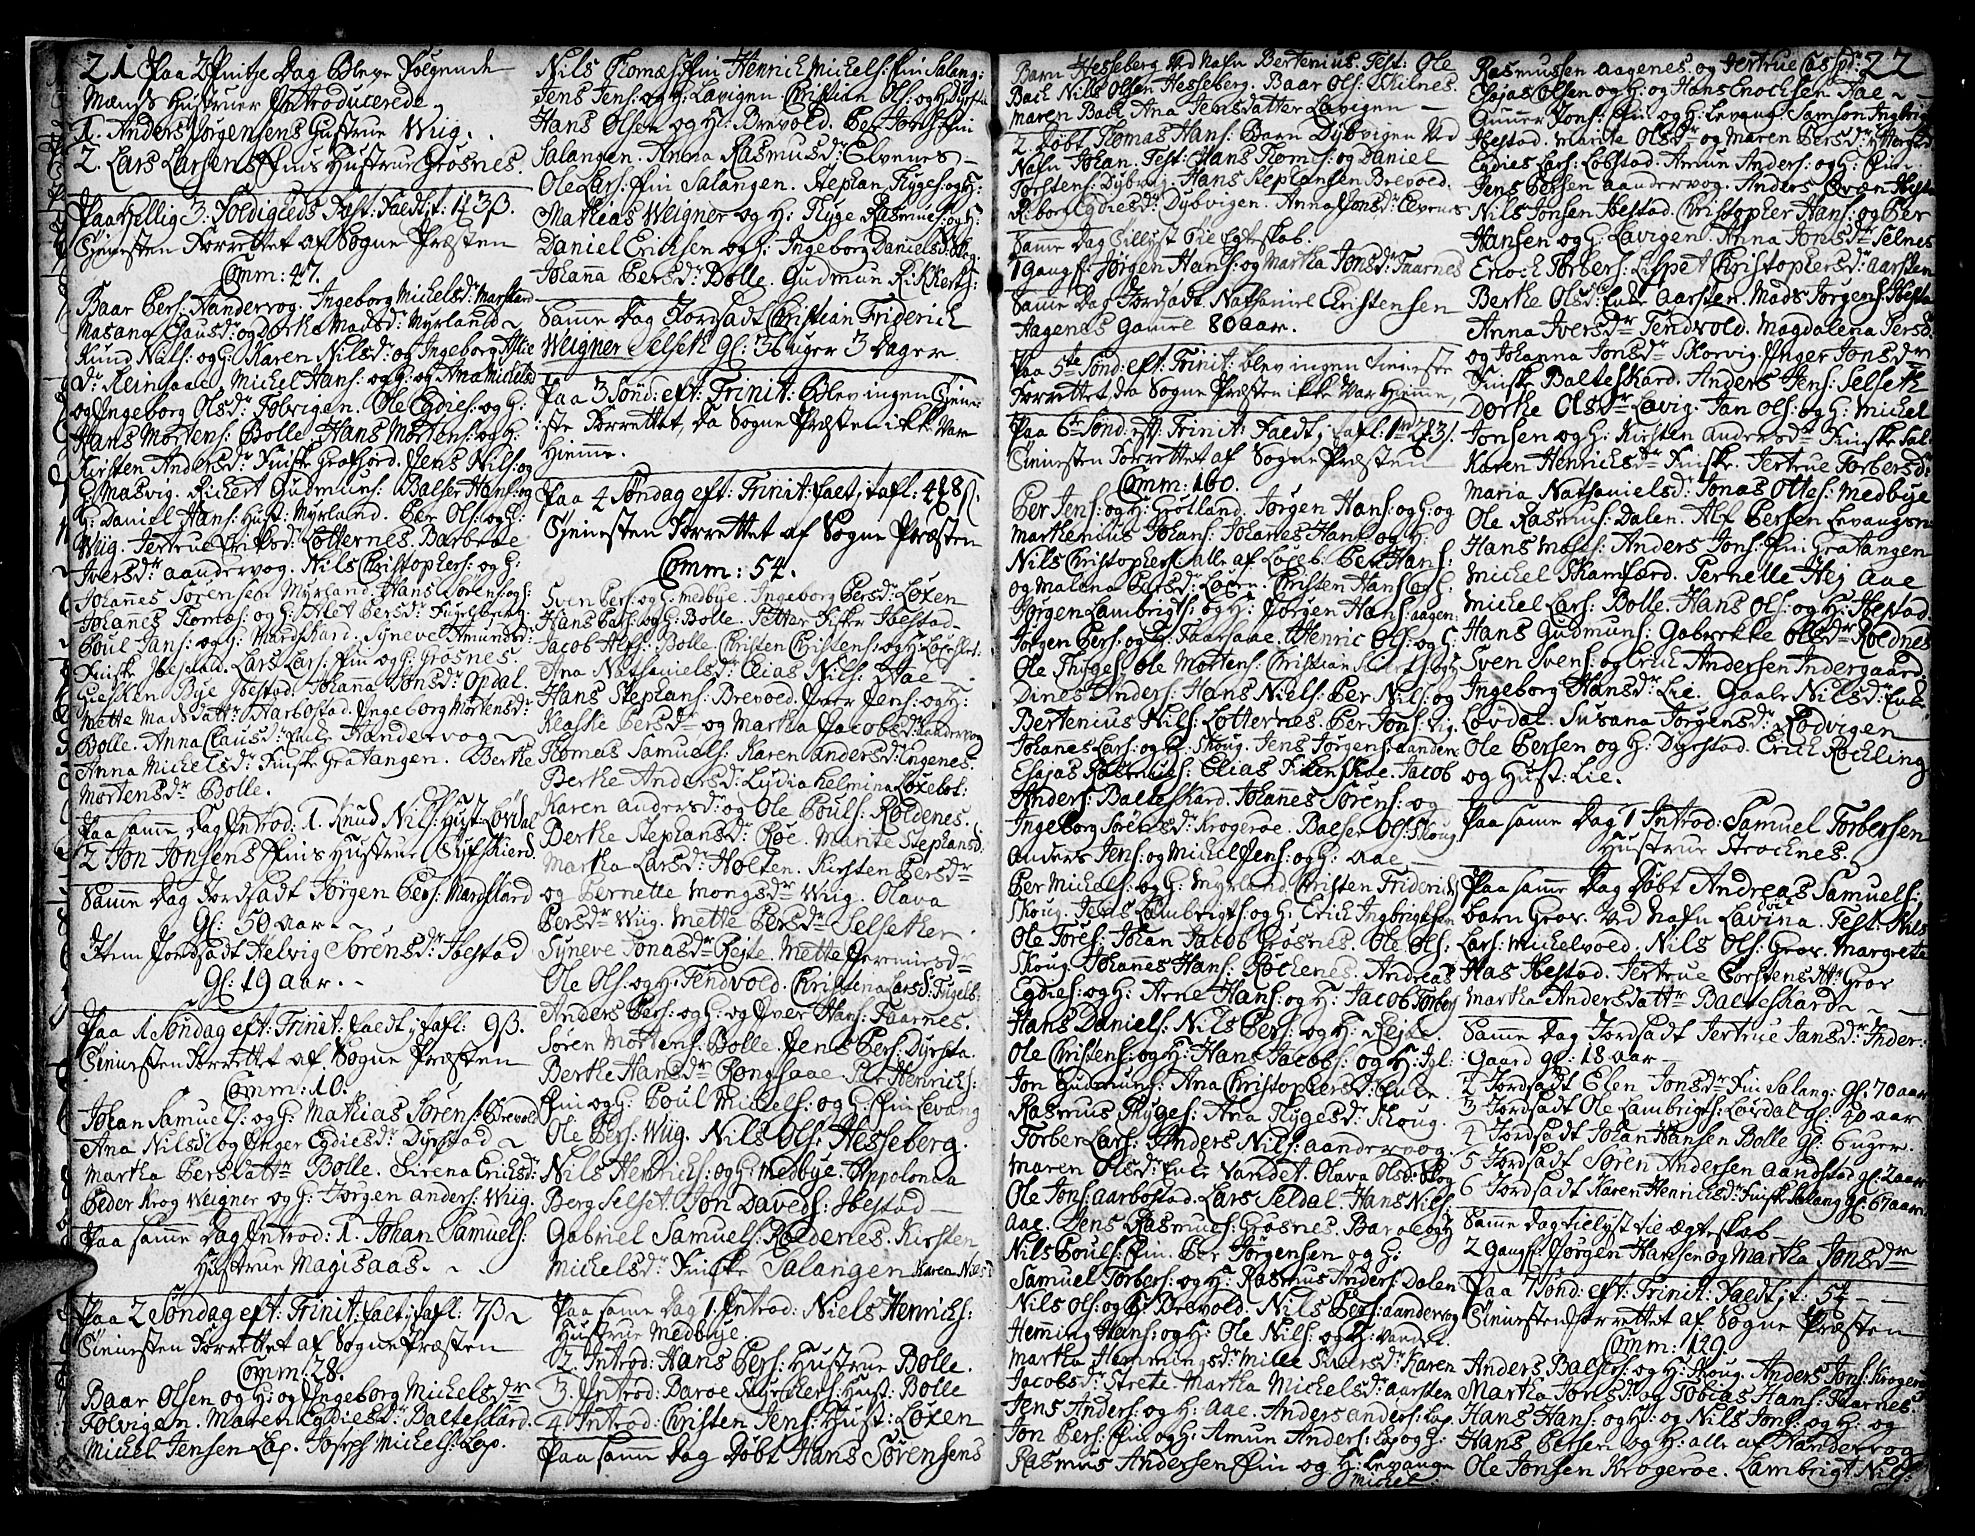 21 Paa 2 Pintze Dag Bleve Følgende
Mænds Hustruer Introducerede
1. Anders Jørgensens Hustrue Wiig.
2. Lars Larsens Fins Hustrue Grosnes.
Paa Hellig 3: Foldigheds Fest:
Tienesten Forrettet af Sogne Præsten
Comm: 47.
Baar Pers: Aandervog. Ingeborg Michelsdr:
Masana Clausdr: og Dorthe Madsdr: Myrland
Knud Nils: og H: Karen Nilsdr: og Ingeborg
dr: Reinsaae. Michel Hans: og H: og Ana Michelsd
og Ingeborg Olsdr: Følvigen. Ole Egdies: og H:
Hans Mortens: Bolle. Hans Mortens: og H:
Kirsten Andersdr: Finske Grafjord. Jens Nils: og
H: Masvig. Rickert Gudmuns: Balser Hans: og
H: Daniel Hans: Hust: Myrland. Per Ols: og H:
Wiig. Jertrue Eriksdr: Lotternes. Barbroe
Iversdr: aandervog. Nils Christophers: og H:
Johannes Sørensen Myrland. Hans Sørens: og
Johanes Thomæs: og H: Alet Persdr: Fugelberg.
Poul Jans: og H: Mardskard. Synevet Amunsdr:
Finske Ibestad. Lars Lars: Fin og H: Grosnes.
Giesken Bye Ibestad. Johanna Jonsdr: Opdal
Mette Madsdattr: Aarbostad. Ingeborg Mortensdr:
Bolle. Anna Clausdr: Enke Aandervog
Anna Michelsdr: Finske Gratangen. Berthe
Mortensdr: Bolle.
Paa samme Dag Introd: 1. Knud Nils: Hust: Løvdal
2 Jon Jonsens Fins Hustrue
Samme Dag Jordsadt Jørgen Pers: Mardskard
Gl: 50 aar
Item Jordsadt Helvig Sørensdr: Ibestad
Gl: 19 aar.
Paa 1. Søndag eft: Trinit: faedt i tafl: 9
Tienesten Forrettet af Sogne Præsten
Comm: 10.
Johan Samuels: og H: Mathias Sørens: Brevold
Ana Nilsdr: og Inger Egdiesdr: Dyrstad
Martha Persdattr Bolle. Sirena Ericksdr:
Peder Krog Weigner og H: Jørgen anders: Wiig.
Paa samme Dag Introd: 1. Johan Samuels:
Hustrue Magisaas.
Paa 2 Søndag eft: Trinit: faet: tafl: 7
Tienesten Forrettet af Sogne Præsten
Comm: 28.
Baar Olsen og H: og Ingeborg Michelsdr
Følvigen. Maren Egdiesdr: Balteskard.
Michel Jensen Lap. Joseph Michels: Lap.
Nils Thomæs: Fin Henrich Michels: Fin Salang:
Jens Jens: og H: Lavigen. Christian Ols: og H: Dyrsta
Hans Olsen og H: Brevold. Per Jons: Fin
Salangen. Anna Rasmusdr: Elvenes
Ole Lars: Fin Salangen. Stephan Flyges: og H:
Mathias Weigner og H: Flyge Rasmus: og H:
Daniel Ericksen og H: Ingeborg Danielsdr:
Johana Persdr: Bolle. Gudmun Rikkerts:
Samme Dag Jordsadt Christian Friderich
Weigner Selseth Gl: 36 uger 3 Dager
Paa 3 Sønd: eft: Trinit: Blev ingen Tiene-
ste Forrettet, da Sogne Præsten ikke Var
Hiemme.
Paa 4 Søndag eft: Trinit: faet: tafl:
Tienesten Forrettet af Sogne Præsten
Comm: 54.
Sven Pers: og H: Medbye. Ingeborg Persdr: Løxen
Hans Lars: og H: Bolle. Petter Fisker Ibestad
Jacob Alfs: Bolle. Christen Christens: og H:
Ana Nathanielsdr: Elias Nils: Aae
Hans Stephans: Brevold. Iver Jens: og H:
Klaske Persdr og Martha Jacobsdr: Aandervog
Thomas Samuels: Karen Andersdr: Engenes.
Berthe Andersdr: Lydia Helmina Løxebot:
Karen Andersdr: og Ole Pouls: Roldenes.
Berthe Stephansdr: Roe. Marite Stephansd
Martha Larsdr: Holten. Kirsten Persdr
og Pernette Mongsdr Wiig. Olava
Persdr Wiig. Mette Persdr Selseth
Syneve Jonasdr Rejte. Mette Jeremiasdr
Ole Ols: og H: Tendvold. Christina Larsdr: Fugels:
Anders Pers: og H: og Iver Hans: Faarnes.
Søren Mortens: Bolle. Jens Pers: Dyrsta.
Berthe Hansdr Rongsaae. Per Henrichs:
Fin og H: Poul Michels: og H: Fin Levang
Ole Pers: Wiig. Nils Ols: Hesseberg.
Nils Henrichs: og H: Medbye. Appolona
Berg Selset. Jon Daveds: Ibestad
Gabriel Samuels: Roldenes. Kirsten
Michelsdr: Finske Salangen Karen Nilsd
Paa same Dag 1. Introd: Niels Henrichs:
Hustrue Medbye.
2. Introd: Hans Pers: Hustrue Bolle.
3. Introd: Baroe Hust: Bolle
4. Introd: Christen Jens: Hust: Løxen
Paa samme Dag Døbt Hans Sørensens
Barn Hesseberg Ved Nafn Bertenius. Test: Ole
Bach Nils Olsen Hesseberg. Baar Ols: Skilnes.
Maren Bach Ana Jensdatter Lavigen
2. Døbt Thomas Hans: Barn Dybvigen Ved
Nafn Johan. Test: Hans Thomes: og Daniel
Torstens: Dybvig. Hans Stephansen Brevold.
Riborg Egdiesdr: Dybvigen. Anna Jonsdr: Elvenes
Same Dag Tillyst til Egteskab.
1 Gang: Jørgen Hans: og Martha Jonsdr: Faarnes
Samme Dag Jordsadt Nathaniel Christensen
Hagenes Gammel 80 aar.
Paa 5te Sønd: eft: Trinit: blev ingen tieneste
Forrettet, da Sogne Præsten ikke Var Hiemme,
Paa 6te Sønd: eft: Trinit: Faedt, i tafl:
Tienesten Forrettet af Sogne Præsten
Comm: 160.
Per Jens: og H: Grotland. Jørgen Hans: og H: og
Marthenius Johans: Johanes Hans: og H:
Nils Christophers: alle af Løxeb. Per Hans:
og Malena Persdr: Løxen. Christen Hans: og H:
Jørgen Lambrigts: og H: Jørgen Hans: aagen:
Jørgen Pers: og H: Faarsaae. Henric Ols: og H:
Ole Thyges: Ole Mortens: Christian
Dines Anders: Hans Niels: Per Nils: og
Bertenius Nils: Lotternes. Per Jons: Vig.
Johanes Lars: og H: Skoug. Jens Jørgens: aander:
Esajas Rasmus: Elias Jacob
Anders: Balteskard. Johannes Sørens: og
Ingeborg Sørensdr: Krogeroe. Balser Ols: Skoug
Anders Jens: og Michel Jens: og H: Aae
Per Michels: og H: Myrland. Christen Friderich
Skoug. Jens Lambrigts: og H: Erich Ingbrigtsen
Ole Tores: Johan Jacob Grosnes. Ole Ols:
Skoug. Johannes Hans: Rochenes. Andreas
Egdies: og H: Arne Hans: og H: Jacob Torbers
Hans Daniels: Nils Pers: og H: Rejte
Ole Christens: og H: Hans Jacobs: og H: Igl:
Jon Gudmuns: Ana Christophersdr: Enke
Rasmus Thyges: Ana Flygesdr: Skoug.
Torber Lars: Anders Nils: aandervog.
Maren Olsdr: Enke Vandet. Olava Olsdr: Skog
Ole Jons: aarbostad. Lars Seldal. Hans Nils:
Aae. Jens Rasmus: Grosnes. Baroe og H
Nils Pouls: Fin. Per Jørgensen og H:
Samuel Torbers: og H: Rasmus Anders: Dalen
Nils Ols: og H: Brevold. Nils Pers: aandervog
Hemming Hans: og H: Ole Nils: og H: Vandet.
Martha Hemmingsdr: Mille Karen
Jacobsdr: Strete. Martha Michelsdr: aarsten
Jens Anders: og H: Aae. Anders anders: Lap.
Jon Pers: Fin og H: Amun Anders: Lap og H:
Rasmus Andersen Fin og H: Levange
Michel
Rasmussen aagenes og Jertrue 22
Esajas Olsen og H: og Hans Enochsen Aae
Gunner Jons: Fin og H: Levang. Samson Ingbrigt
Ibestad. Marite Olsdr og Maren Persdr:
Egdies Lars: Løbstad. Amun Anders: og H: Fin
Jens Persen aandervog. Anders
Nils Jonsen Ibestad. Christopher Hans: og Per
Hansen og H: Lavigen. Anna Jonsdr Selnes
Enoch Torbers: Lispet Christophersdr: Aarsten
Berthe Olsdr: Enke Aarsten. Mads Jørgens: Ibesta
Anna Iversdr Tendvold. Magdalena Persd
og Johanna Jonsdr Skorvig. Inger Jonsdr
Finske Balteskard. Anders Jens: Selseth
Dorthe Olsdr Lavig. Jan Ols: og H: Michel
Jonsen og H: Kirsten Andersdr Finske Sal:
Karen Henrichsdr Finske. Jertrue Torbersdr:
Maria Nathanielsdr: Jonas Ottes: Medbye
Ole Rasmus: Dalen. Alf Persen Levangsn
Hans Moses: Anders Jons: Fin Gratangen
Michel Skamfærd. Pernelle Hej Aae
Michel Lars: Bolle. Hans Ols: og H: Ibestad.
Hans Gudmuns: Gabrekke Olsdr Roldnes
Sven Svens: og Erich Andersen Indergaard,
Ingeborg Hansdr: Lie. Gaale Nilsdr: Enk:
Løvdal. Susana Jørgensdr: Rodvigen
Ole Persen og H: Dyrstad. Erich Rochling
og Hust: Lie.
Paa same Dag 1 Introd: Samuel Torbersen
Hustrue Strocknes.
Paa same Dag Døbt Andreas Samuels:
barn Grov. Ved Nafn Lavina. Test: Nils
Lars: Michelvold. Nils Ols: Grov. Margrete
Has Ibestad. Jertrue Torstensdttr Grov
Martha Andersdattr Balteskard
Samme Dag Jordsadt Jertrue Jansdr: Inder:
Gaard gl: 18 aar
2 Jordsadt Elen Jonsdr Fin Salang: gl: 70 aar
3 Jordsadt Ole Lambrigts: Løvdal gl: 40 aar
4 Jordsadt Johan Hansen Bolle gl: 6 uger.
5 Jordsadt Søren Andersen Aandstad gl: 2 aar
6 Jordsadt Karen Henrichsdr: Finske Salang gl: 67 aar
Samme Dag tielyst til Egteskab
2 Gang: Jørgen Hansen og Martha Jonsdr
Paa 7 Sønd: eft: Trinit: Faedt, i t: 5
Tienesten Forrettet af Sogne Præsten
Comm: 149.
Anders Balsers: og H: Skoug. Anders Jons: Krogeroe
Martha Jonsdr og Tobias Hans: Faarnes
Hans Hans: og H: og Nils Jons: og H: og
Hans Persen og H: alle af Aandervog
Ole Jonsen Krogeroe. Lambrigt Nils: